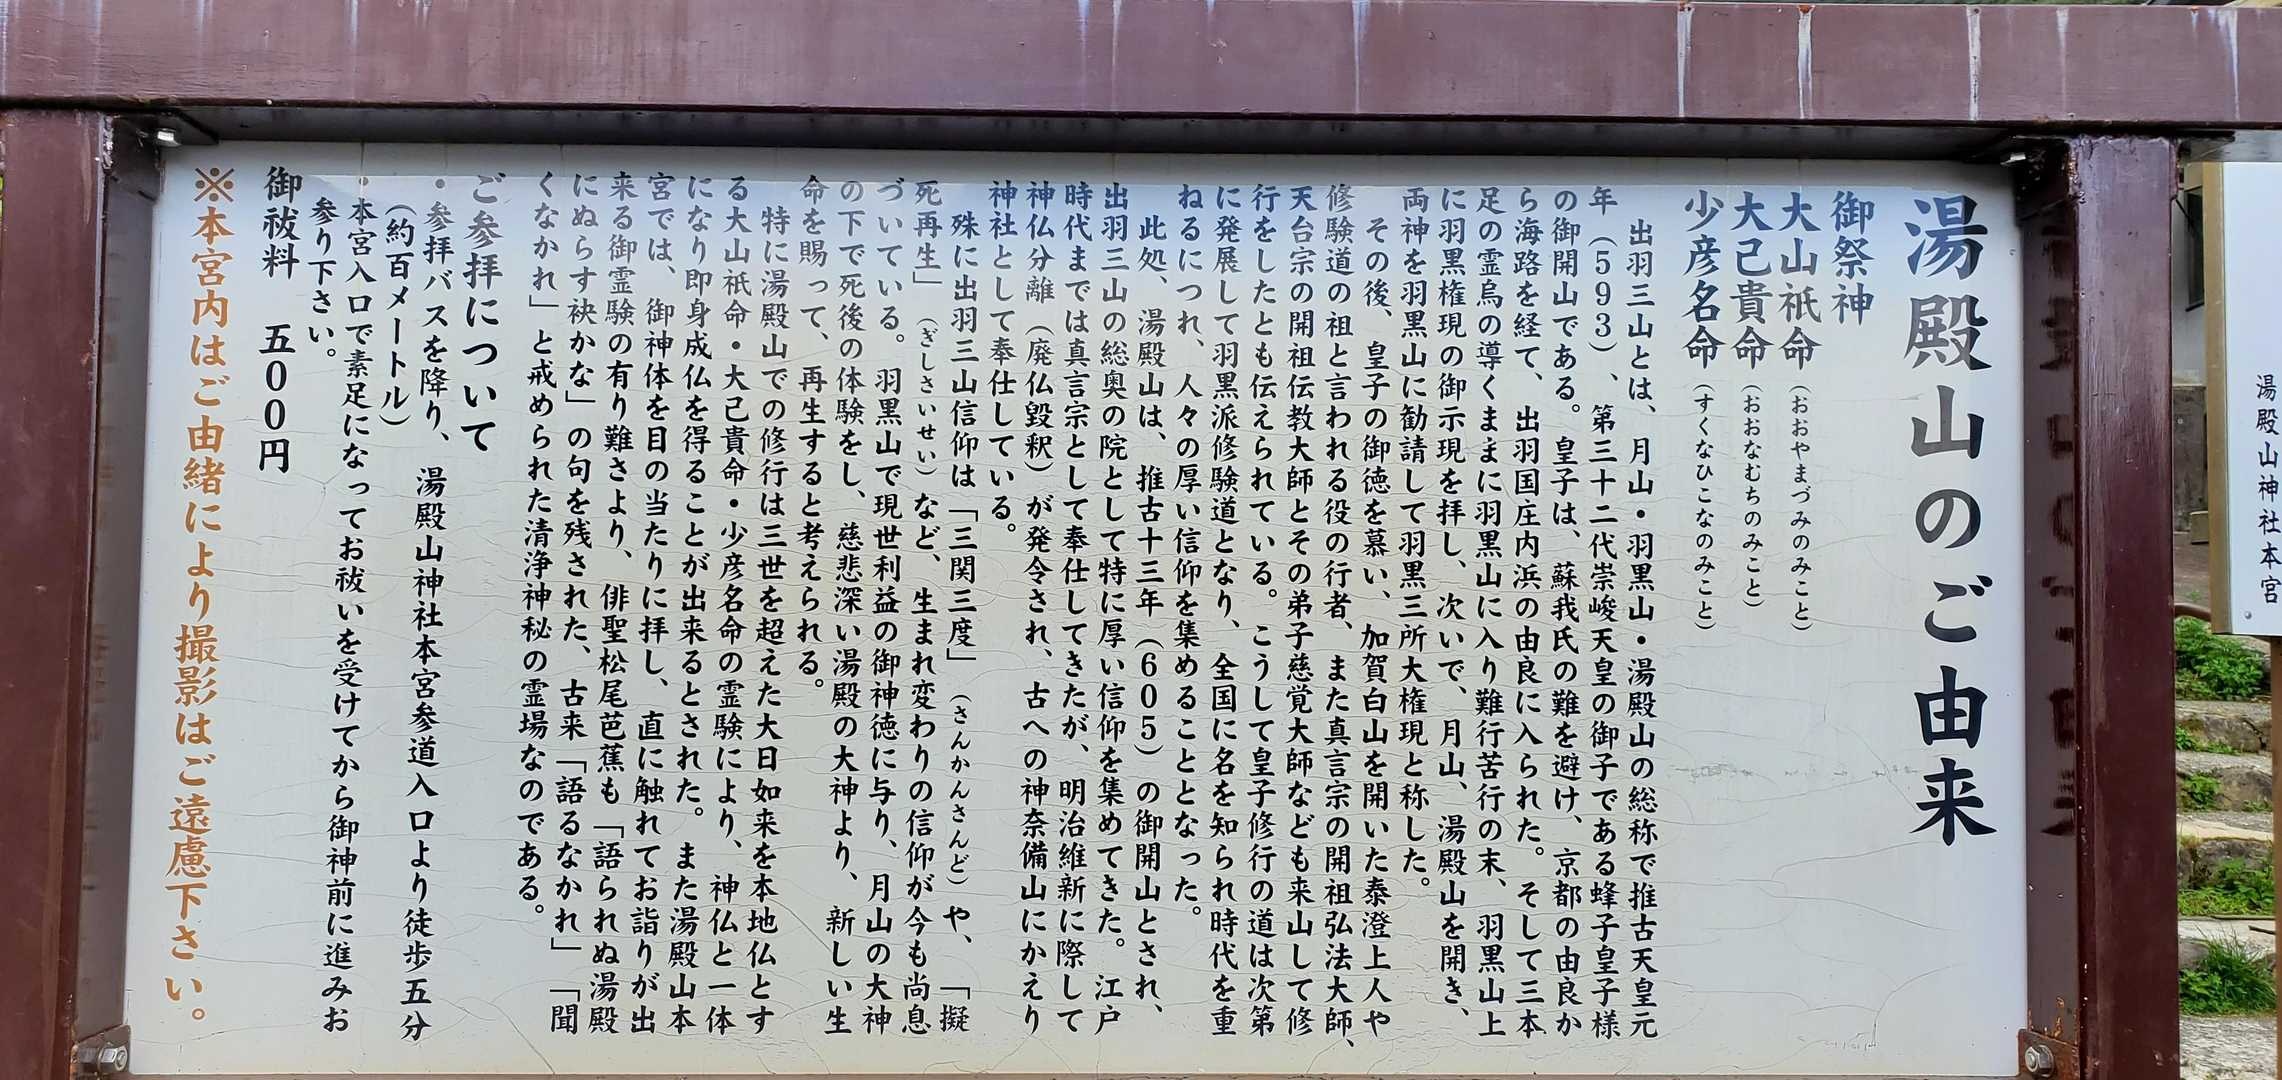 湯殿山のご由来
御祭神
大山祇命（おおやまづみのみこと）
大己貴命（おおなむちのみこと）
少彦名命（すくなひこなのみこと）
出羽三山とは、月山・羽黒山・湯殿山の総称で推古天皇元
年（５９３）、第三十二代崇峻天皇の御子である蜂子皇子様
の御開山である。皇子は、蘇我氏の難を避け、京都の由良か
ら海路を経て、出羽国庄内浜の由良に入られた。そして三本
足の霊烏の導くままに羽黒山に入り難行苦行の末、羽黒山上
に羽黒権現の御示現を拝し、次いで、月山、湯殿山を開き、
両神を羽黒山に勧請して羽黒三所大権現と称した。
その後、皇子の御徳を慕い、加賀白山を開いた泰澄上人や
修験道の祖と言われる役の行者、また真言宗の開祖弘法大師、
天台宗の開祖伝教大師とその弟子慈覚大師なども来山して修
行をしたとも伝えられている。こうして皇子修行の道は次第
に発展して羽黒派修験道となり、全国に名を知られ時代を重
ねるにつれ、人々の厚い信仰を集めることとなった。
此処、湯殿山は、推古十三年（６０５）の御開山とされ、
出羽三山の総奥の院として特に厚い信仰を集めてきた。江戸
時代までは真言宗として奉仕してきたが、明治維新に際して
神仏分離（廃仏毀釈）が発令され、古への神奈備山にかえり
神社として奉仕している。
殊に出羽三山信仰は「三関三度」（さんかんさんど）や、「擬
死再生」（ぎしさいせい）など、生まれ変わりの信仰が今も尚息
づいている。羽黒山で現世利益の御神徳に与り、月山の大神
の下で死後の体験をし、慈悲深い湯殿の大神より、新しい生
命を賜って、再生すると考えられる。
特に湯殿山での修行は三世を超えた大日如来を本地仏とす
る大山祇命・大己貴命・少彦名命の霊験により、神仏と一体
になり即身成仏を得ることが出来るとされた。また湯殿山本
宮では、御神体を目の当たりに拝し、直に触れてお詣りが出
来る御霊験の有り難さより、俳聖松尾芭蕉も「語られぬ湯殿
にぬらす袂かな」の句を残された、古来「語るなかれ」「聞
くなかれ」と戒められた清浄神秘の霊場なのである。
ご参拝について
・参拝バスを降り、湯殿山神社本宮参道入口より徒歩五分
（約百メートル）
・本宮入口で素足になってお祓いを受けてから御神前に進みお
参り下さい。
御祓料　五００円
※本宮内はご由緒により撮影はご遠慮下さい。
湯殿山神社本宮